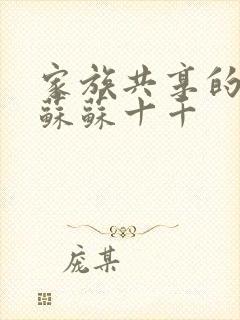 家族共享的
蘇蘇十十
庞某